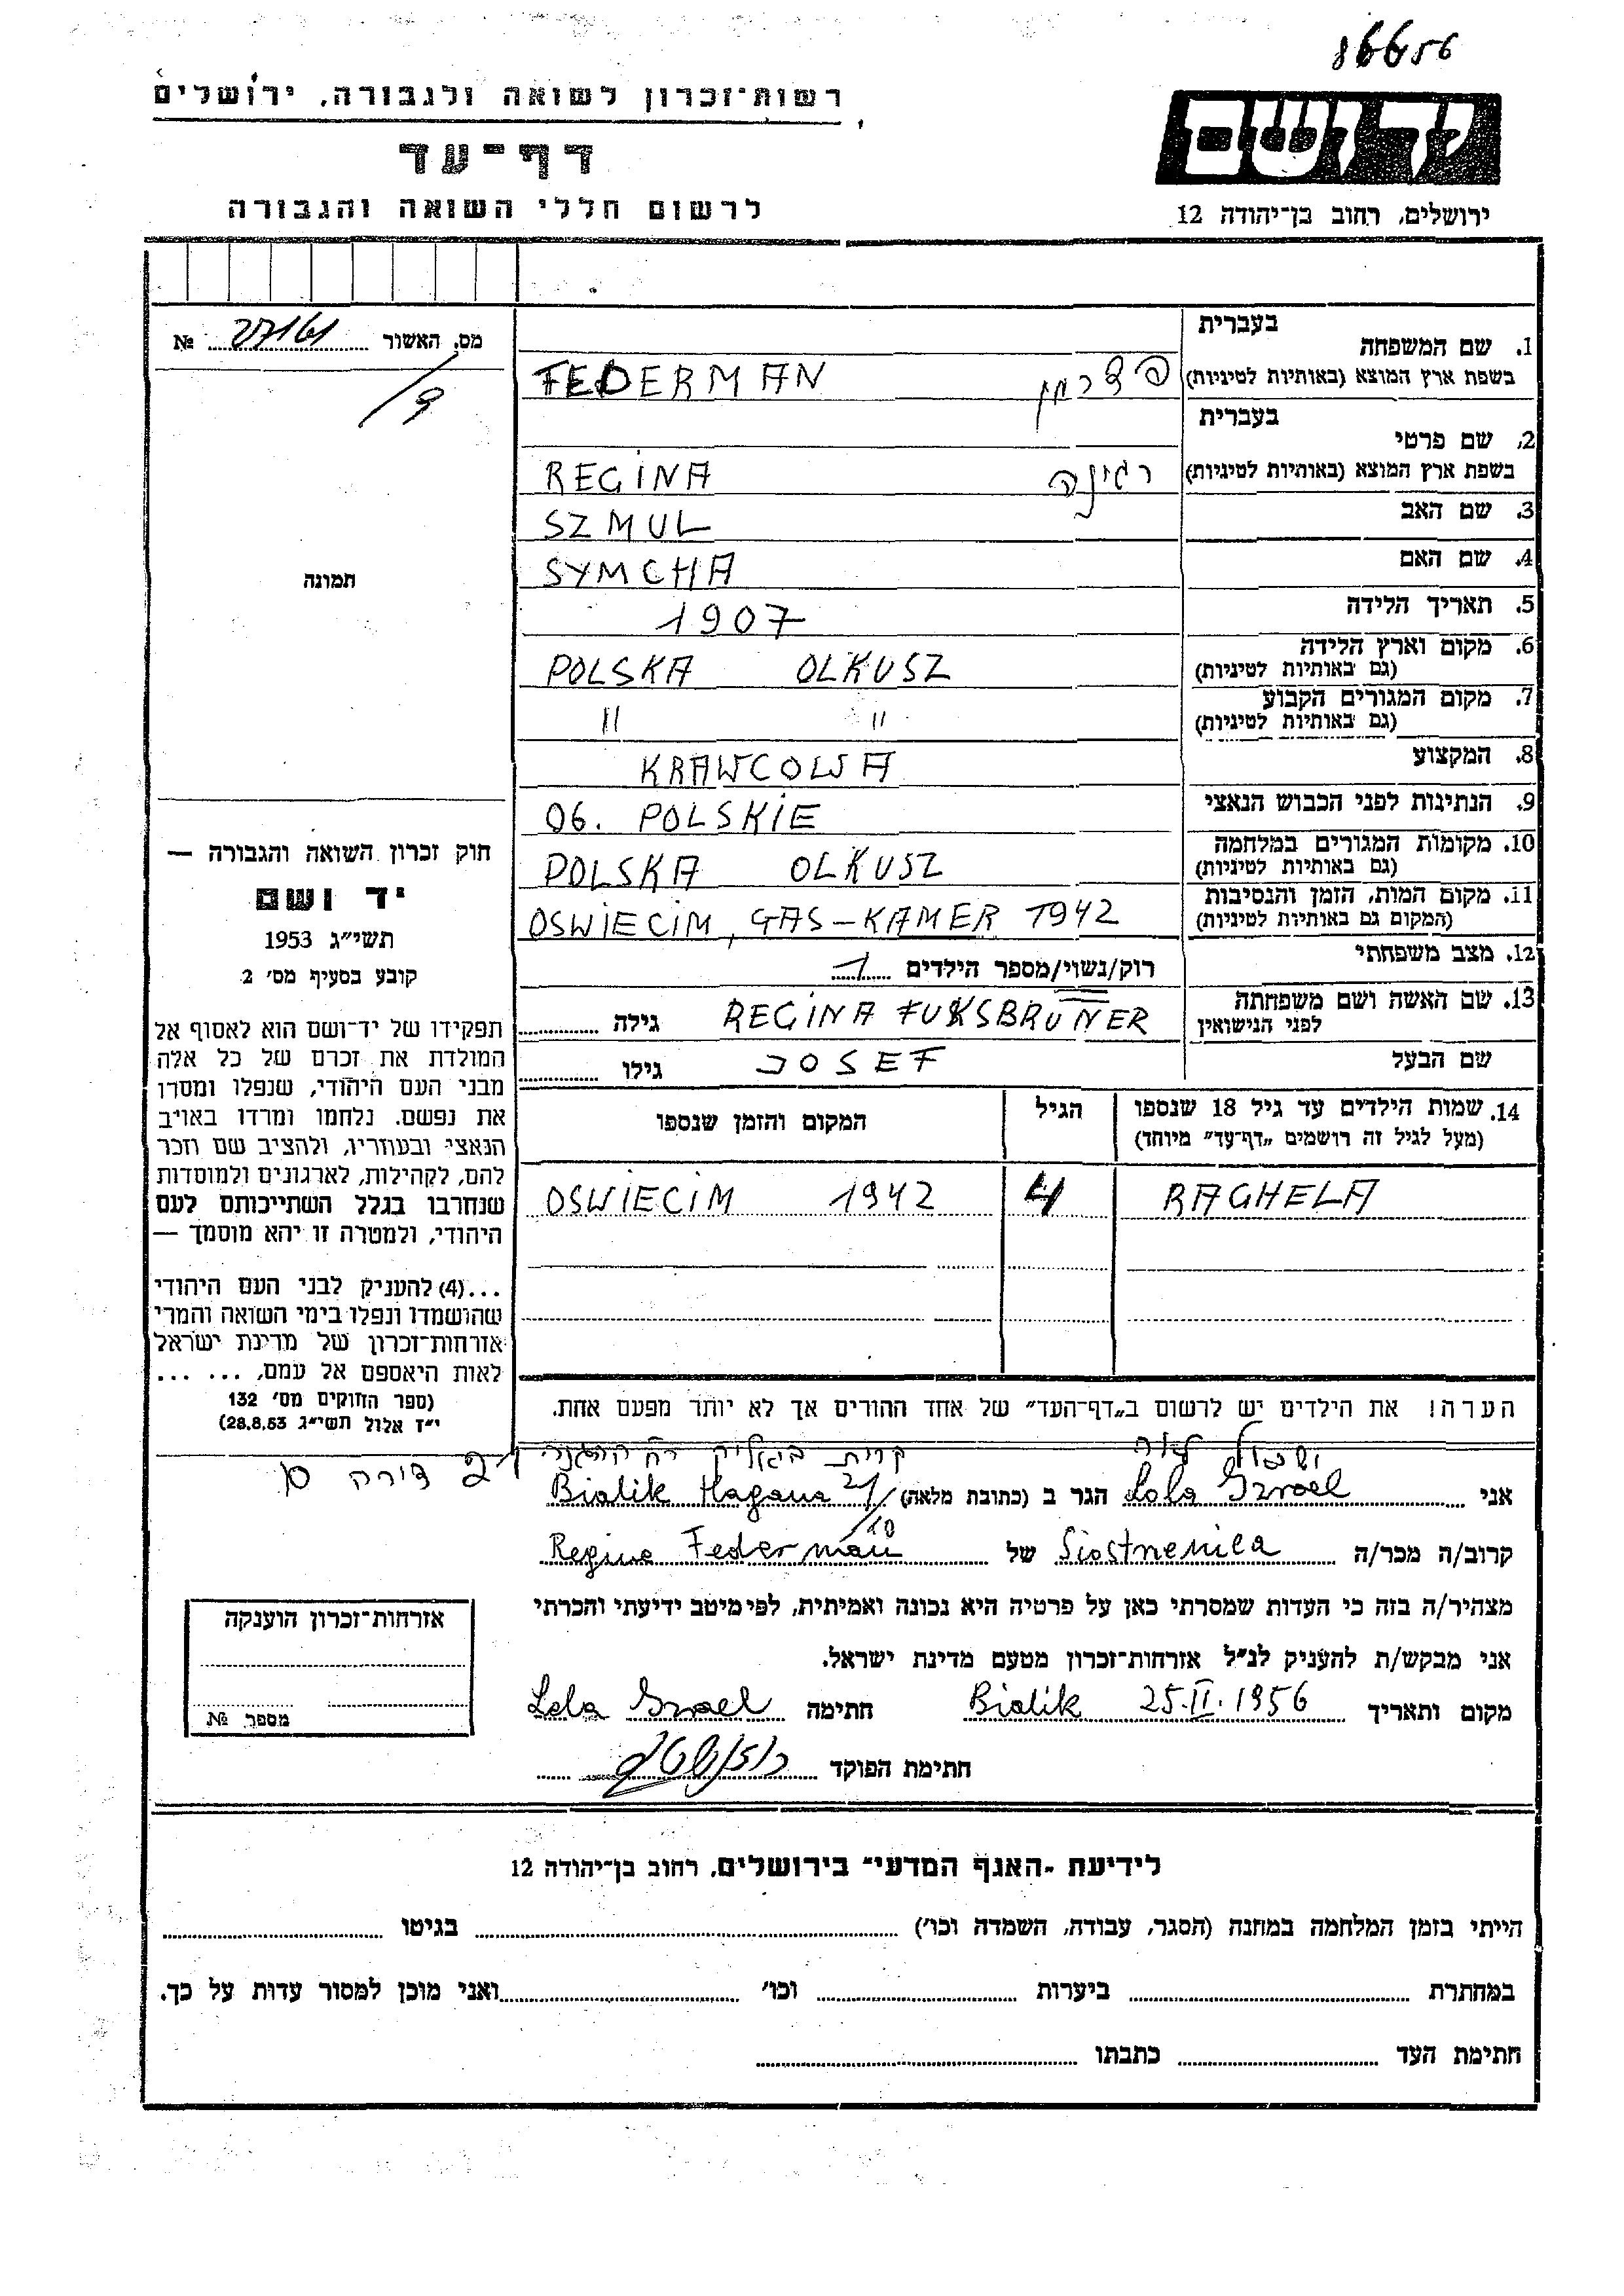 86656
רשות־זכרון לשואה ולגבורה, ירושלים
ידושם
דף־עד
לרשום חללי השואה והגבורה
ירושלים, רחוב בן־יהודה 12
מס. האשור 27161 №
1. שם המשפחה בעברית
בשפת ארץ המוצא (באותיות לטיניות) פדרמן FEDERMAN
2. שם פרטי בעברית
בשפת ארץ המוצא (באותיות לטיניות) רגינה REGINA
3. שם האב SZMUL
4. שם האם SYMCHA
5. תאריך הלידה 1907
6. מקום וארץ הלידה (גם באותיות לטיניות) POLSKA OLKUSZ
7. מקום המגורים הקבוע (גם באותיות לטיניות) " "
8. המקצוע KRAWCOWA
9. הנתינות לפני הכבוש הנאצי OB. POLSKIE
10. מקומות המגורים במלחמה (גם באותיות לטיניות) POLSKA OLKUSZ
11. מקום המות, הזמן והנסיבות (המקום גם באותיות לטיניות) OSWIECIM, GAS-KAMER 1942
12. מצב משפחתי רוק/נשוי/מספר הילדים 1
13. שם האשה ושם משפחתה לפני הנישואין REGINA FUKSBRUNER גילה
שם הבעל JOSEF גילו
14. שמות הילדים עד גיל 18 שנספו הגיל המקום והזמן שנספו
(מעל לגיל זה רושמים „דף־עד” מיוחד)
RAGHELA 4 OSWIECIM 1942
הערה! את הילדים יש לרשום ב„דף־העד” של אחד ההורים אך לא יותר מפעם אחת.
תמונה
חוק זכרון השואה והגבורה —
יד ושם
תשי״ג 1953
קובע בסעיף מס׳ 2
תפקידו של יד־ושם הוא לאסוף אל
המולדת את זכרם של כל אלה
מבני העם היהודי, שנפלו ומסרו
את נפשם. נלחמו ומרדו באויב
הנאצי ובעוזריו, ולהציב שם וזכר
להם, לקהילות, לארגונים ולמוסדות
שנחרבו בגלל השתייכותם לעם
היהודי, ולמטרה זו יהא מוסמך —
...(4) להעניק לבני העם היהודי
שהושמדו ונפלו בימי השואה והמרי
אזרחות־זכרון של מדינת ישראל
לאות היאספם אל עמם, ... ...
(ספר החוקים מס׳ 132
י״ז אלול תשי״ג 28.8.53)
קרית ביאליק רח ההגנה דירה
אני Lola Izrael הגר ב (כתובת מלאה) Bialik Hagana 21/10
קרוב/ה מכר/ה Siostrenica של Regina Federman
מצהיר/ה בזה כי העדות שמסרתי כאן על פרטיה היא נכונה ואמיתית, לפי מיטב ידיעתי והכרתי
אני מבקש/ת להעניק לנ״ל אזרחות־זכרון מטעם מדינת ישראל.
מקום ותאריך Bialik 25.II.1956 חתימה Lola Izrael
חתימת הפוקד
אזרחות־זכרון הוענקה
מספר №
לידיעת „האגף המדעי” בירושלים, רחוב בן־יהודה 12
הייתי בזמן המלחמה במחנה (הסגר, עבודה, השמדה וכו׳) בגיטו
במחתרת ביערות וכו׳ ואני מוכן למסור עדות על כך.
חתימת העד כתבתו